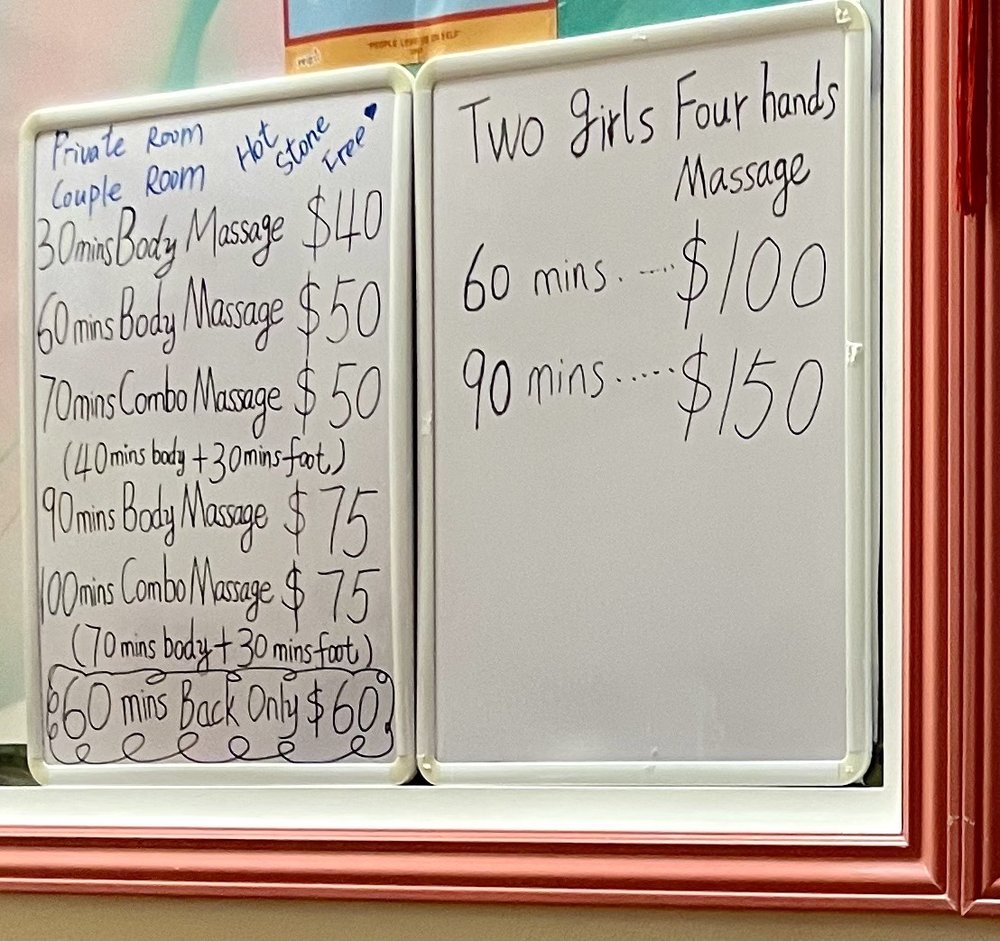 Private Room
Couple Room
Hot
Stone
Free
30mins Body Massage $40
60mins Body Massage $50
70mins Combo Massage $50
(40mins body + 30mins foot)
90mins Body Massage $75
100mins Combo Massage $75
(70 mins body + 30 mins foot)
60 mins Back Only $60
Two girls Four hands
Massage
60 mins. ---- $100
90 mins ..... $150